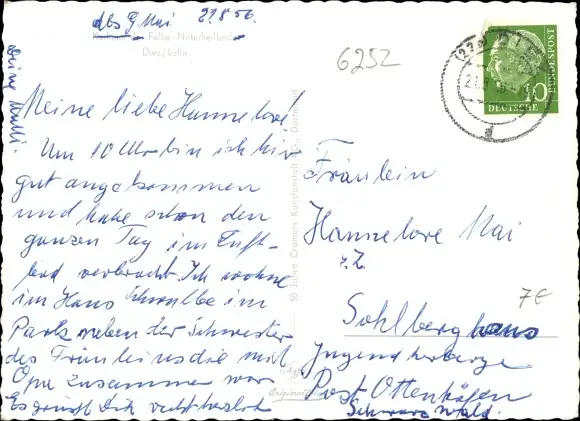 des 9 Mai 21.8.56.
Kurheim des Felke-Naturheilbundes
Diez/Lahn
6252
Meine liebe Hannelore!
Um 10 Uhr bin ich hier
gut angekommen
und habe schon den
ganzen Tag im Luft-
bad verbracht. Ich wohne
im Haus Schwalbe im
Park neben der Schwester
des Fräuleins die mit
Opa zusammen war
Es grüßt Dich recht herzlich
Deine Walli.
50 Jahre Cramers Kunstanstalt
Original
10
BUNDESPOST
DEUTSCHE
Fräulein
Hannelore Mai
z.Z.
Sohlberghaus
Jugendherberge
Post Ottenhöfen
Schwarzwald.
7€